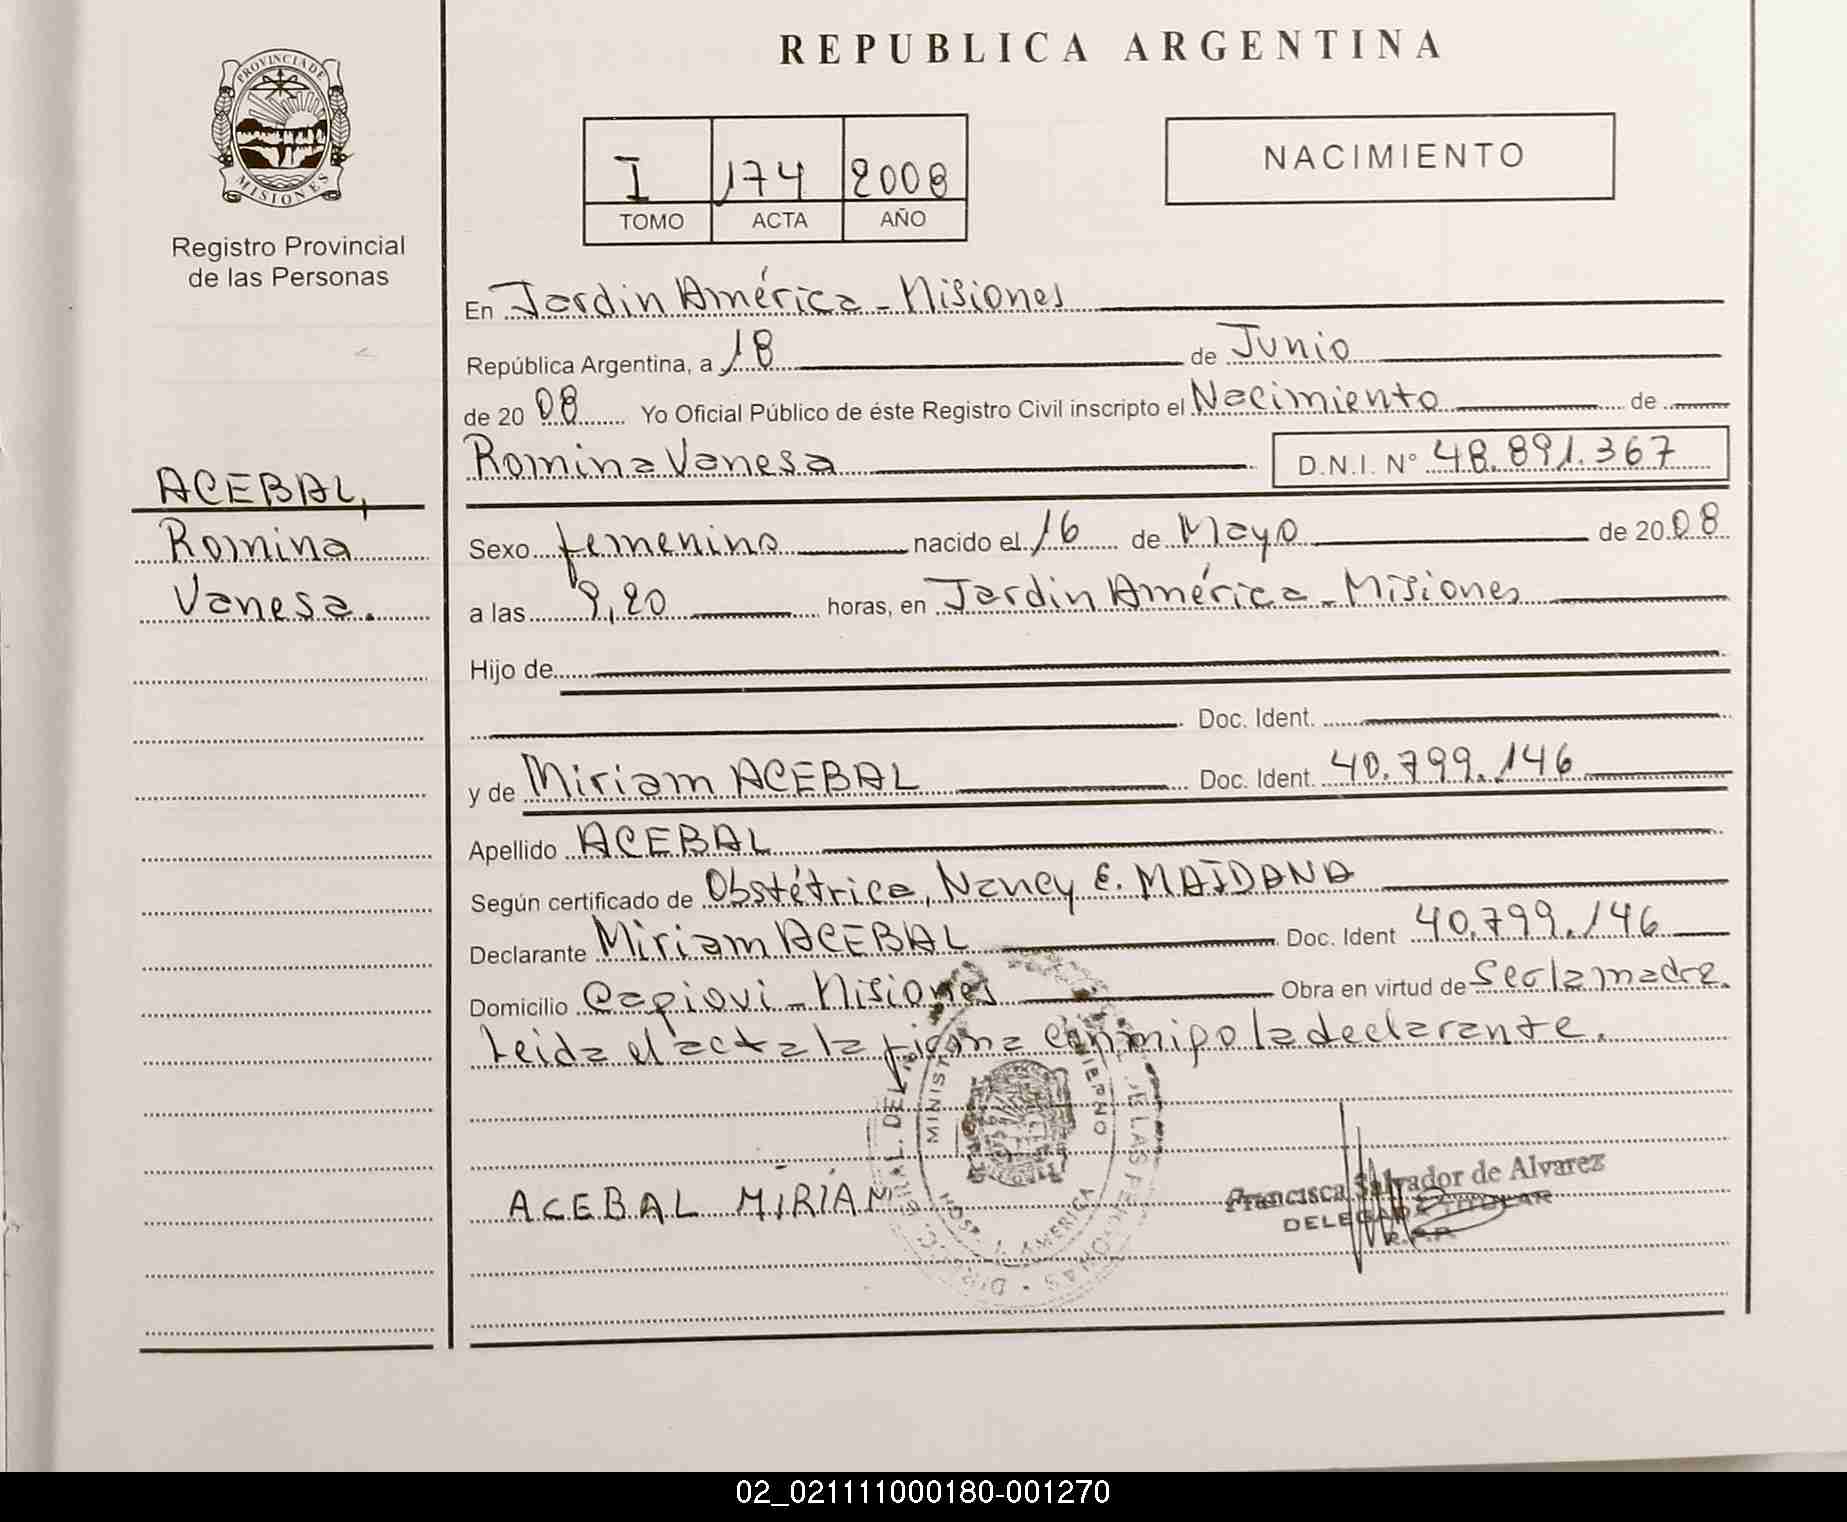 REPUBLICA ARGENTINA
PROVINCIA DE
MISIONES
Registro Provincial
de las Personas
I 174 2008
TOMO ACTA AÑO
NACIMIENTO
En Jardin América - Misiones
República Argentina, a 18 de Junio
de 20 08 Yo Oficial Público de éste Registro Civil inscripto el Nacimiento de
Romina Vanesa D.N.I. N° 48.891.367
ACEBAL,
Romina
Vanesa.
Sexo femenino nacido el 16 de Mayo de 20 08
a las 9,20 horas, en Jardin América - Misiones
Hijo de
Doc. Ident.
y de Miriam ACEBAL Doc. Ident. 40.799.146
Apellido ACEBAL
Según certificado de Obstétrica, Nancy E. MAIDANA
Declarante Miriam ACEBAL Doc. Ident 40.799.146
Domicilio Capiovi - Misiones Obra en virtud de Ser la madre.
Leida el acta la firma conmigo la declarante.
ACEBAL MIRIAM
Francisca Salvador de Alvarez
DELEGADA TITULAR
R.P.P.
02_021111000180-001270